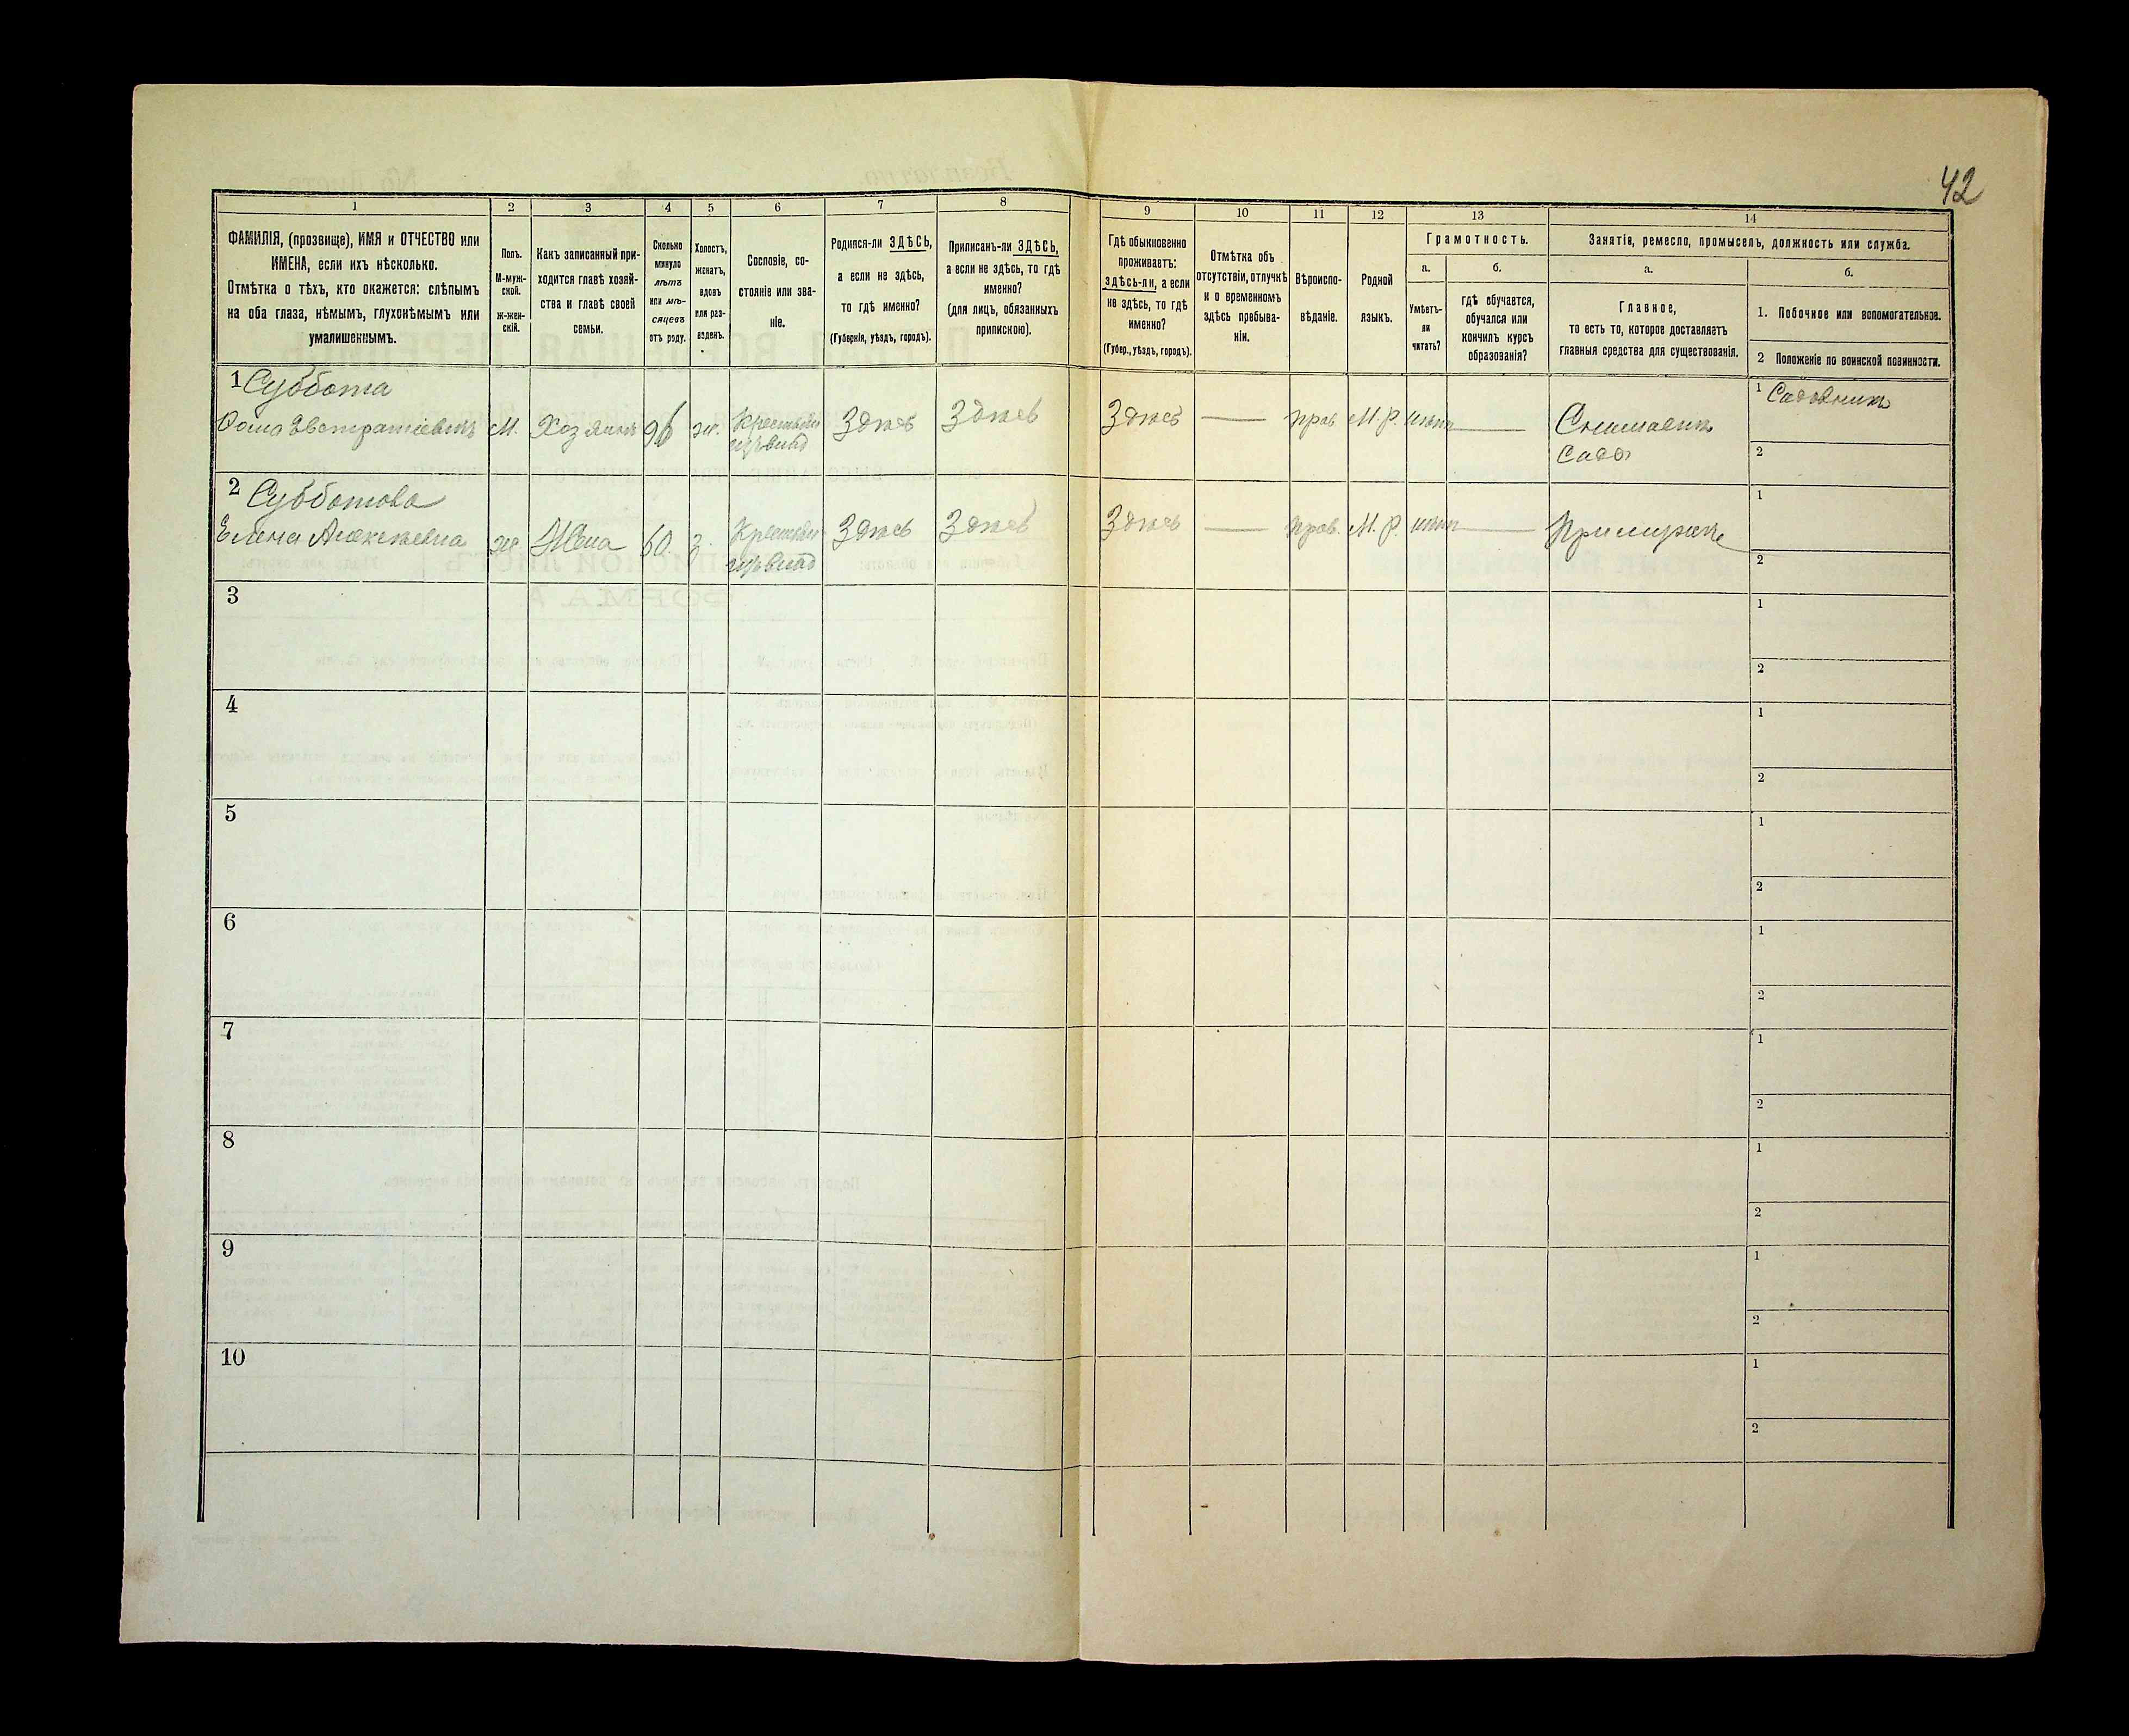 42
1
2
3
4
5
6
7
8
9
10
11
12
13
14
ФАМИЛІЯ, (прозвище), ИМЯ и ОТЧЕСТВО или
ИМЕНА, если ихъ нѣсколько.
Отмѣтка о тѣхъ, кто окажется: слѣпымъ
на оба глаза, нѣмымъ, глухонѣмымъ или
умалишеннымъ.
Полъ.
М-муж-
ской.
ж-жен-
скій.
Какъ записанный при-
ходится главѣ хозяй-
ства и главѣ своей
семьи.
Сколько
минуло
лѣтъ
или мѣ-
сяцевъ
отъ роду.
Холостъ,
женатъ,
вдовъ
или раз-
веденъ.
Сословіе, со-
стояніе или зва-
ніе.
Родился-ли ЗДѢСЬ,
а если не здѣсь,
то гдѣ именно?
(Губернія, уѣздъ, городъ).
Приписанъ-ли ЗДѢСЬ,
а если не здѣсь, то гдѣ
именно?
(для лицъ, обязанныхъ
припискою).
Гдѣ обыкновенно
проживаетъ:
здѣсь-ли, а если
не здѣсь, то гдѣ
именно?
(Губер., уѣздъ, городъ).
Отмѣтка объ
отсутствіи, отлучкѣ
и о временномъ
здѣсь пребыва-
ніи.
Вѣроиспо-
вѣданіе.
Родной
языкъ.
Грамотность.
а.
Умѣетъ-
ли
читать?
б.
гдѣ обучается,
обучался или
кончилъ курсъ
образованія?
Занятіе, ремесло, промыселъ, должность или служба.
а.
Главное,
то есть то, которое доставляетъ
главныя средства для существованія.
б.
1. Побочное или вспомогательное.
2 Положеніе по воинской повинности.
1 Суббота
Фома Евстратіевичъ М. Хозяинъ ж. Здѣсь Здѣсь Здѣсь — прав. М.Р. нѣтъ —
1 Садовникъ
Сада
2
2 Субботова
Елена Алексѣевна ж. Жена 60. з. Здѣсь Здѣсь Здѣсь — прав. М.Р. нѣтъ — При мужѣ
1
2
3
1
2
4
1
2
5
1
2
6
1
2
7
1
2
8
1
2
9
1
2
10
1
2